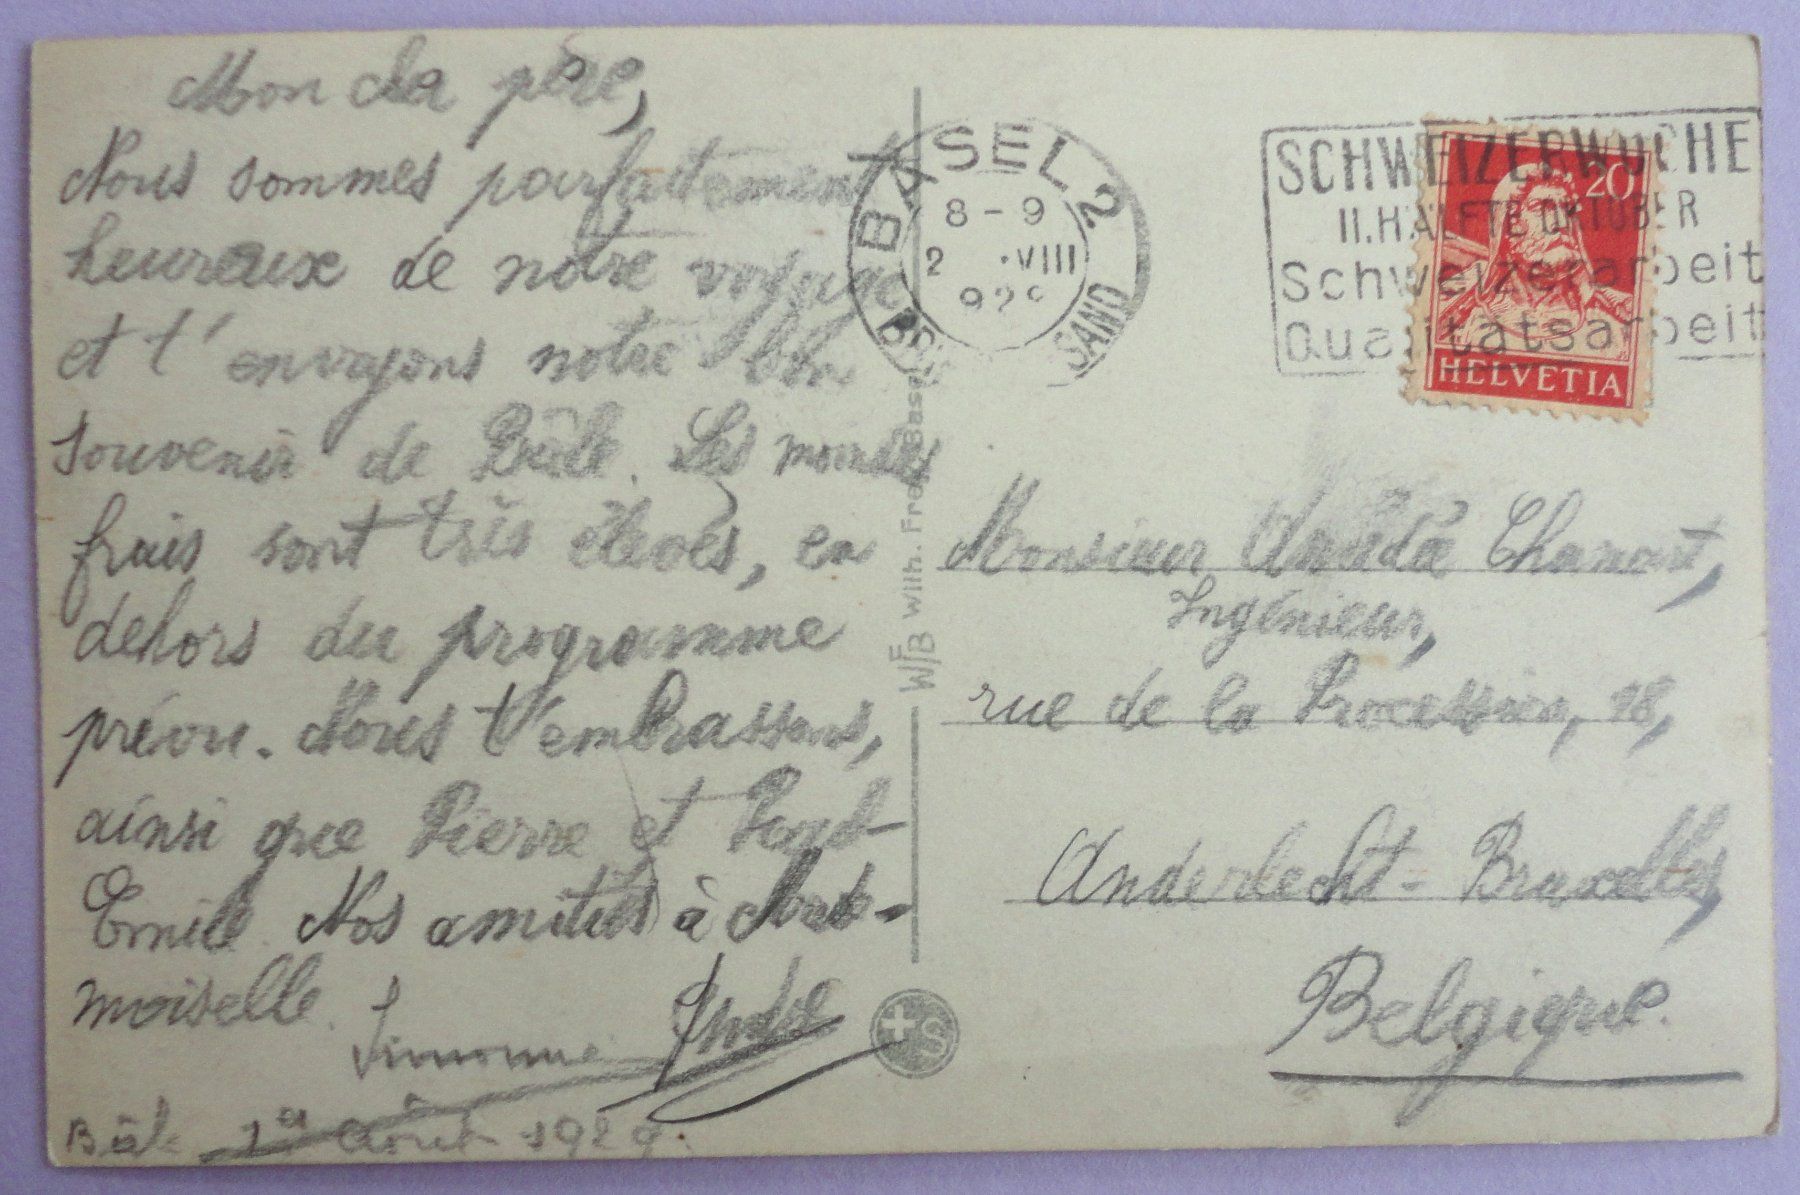 Mon cher père,
Nous sommes parfaitement
heureux de notre voyage
et t'envoyons notre bon
souvenir de Bâle. Les moindres
frais sont très élevés, en
dehors du programme
prévu. Nous t'embrassons,
ainsi que Pierre et Paul-
Emile. Nos amitiés à Made-
moiselle.
Simonne André
Bâle 1er août 1929.
WFB Wilh. Frey, Basel
BASEL 2
8-9
2 ·VIII
929
SAND
SCHWEIZERWOCHE
II. HÄLFTE OKTOBER
Schweizerarbeit
Qualitätsarbeit
20
HELVETIA
Monsieur Chamart,
Ingénieur,
rue de la Procession, 18,
Anderlecht-Bruxelles,
Belgique.